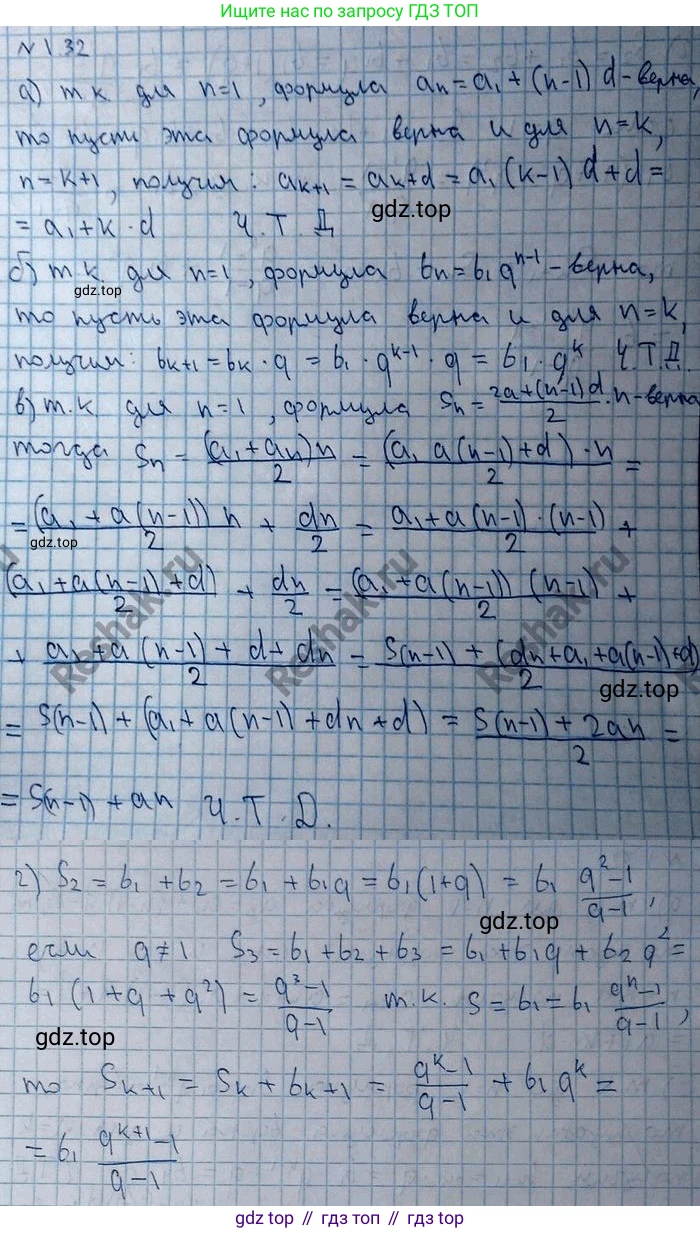 Ищите решения на сайте ГДЗ ТОП
N 1.32
а) т.к. для n=1, формула aₙ=a₁+(n-1)d-верна,
то пусть эта формула верна и для n=k,
n=k+1, получим: aₖ₊₁=aₖ+d=a₁(k-1)d+d=
=a₁+k·d Ч.Т.Д
gdz.top
б) т.к. для n=1, формула bₙ=b₁qⁿ⁻¹-верна,
gdz.top
то пусть эта формула верна и для n=k,
получим: bₖ₊₁=bₖ·q=b₁·qᵏ⁻¹·q=b₁·qᵏ Ч.Т.Д.
в) т.к для n=1, формула Sₙ=(2a+(n-1)d)/2·n-верна
тогда Sₙ=(a₁+aₙ)n/2=(a₁ a(n-1)+d)·n/2=
=(a₁+a(n-1))n/2+dn/2=a₁+a(n-1)·(n-1)/2+
gdz.top
(a₁+a(n-1)+d)/2+dn/2=(a₁+a(n-1))(n-1)/2+
+a₁+a(n-1)+d+dn/2=S(n-1)+(dn+a₁+a(n-1)+d)/2
gdz.top
=S(n-1)+(a₁+a(n-1)+dn+d)=S(n-1)+2an/2=
=S(n-1)+an Ч.Т.Д.
Reshak.ru
Reshak.ru
Reshak.ru
г) S₂=b₁+b₂=b₁+b₁q=b₁(1+q)=b₁ (q²-1)/(q-1),
gdz.top
если q≠1 S₃=b₁+b₂+b₃=b₁+b₁q+b₂q²=
b₁(1+q+q²)=(q³-1)/(q-1) т.к. S=b₁=b₁ (qⁿ-1)/(q-1),
gdz.top
то Sₖ₊₁=Sₖ+bₖ₊₁=(qᵏ-1)/(q-1)+b₁qᵏ=
=b₁ (qᵏ⁺¹-1)/(q-1)
gdz.top // гдз.топ // gdz.top // гдз.топ